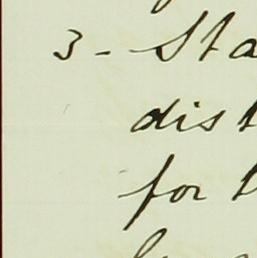 3 - Sta
dist
for t